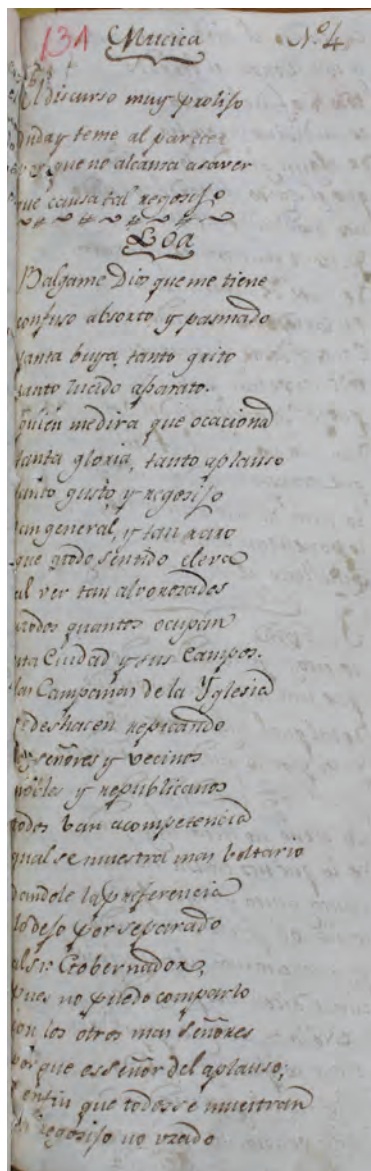 131 Mucica Nº. 4
El discurso muy proliſo
duda y teme al parecer
por que no alcansa asaver
que causa tal regosiſo
Loa
Balgame Dios que me tiene
confuso absorto y pasmado
tanta buya, tanto grito
tanto lucido aparato.
quien medira que ocaciona
tanta gloria, tanto aplauso
tanto gusto, y regosiſo
tan general, y tan raro
que todo sentido eleva
al ver tan alvorozados
todos quantos ocupan
esta Ciudad y sus Campos.
las Campanas de la Yglesia
se deshacen repicando
los señores y vecinos
nobles y republicanos
todos van acompetencia
qual se muestra mas voltario
dandole la preferencia
lo deſo por separado
al Sr. Gobernador,
pues no puedo compararlo
con los otros mas señores
por que es señor del aplauso,
enfin que todos se muestran
regosiſo no vzado